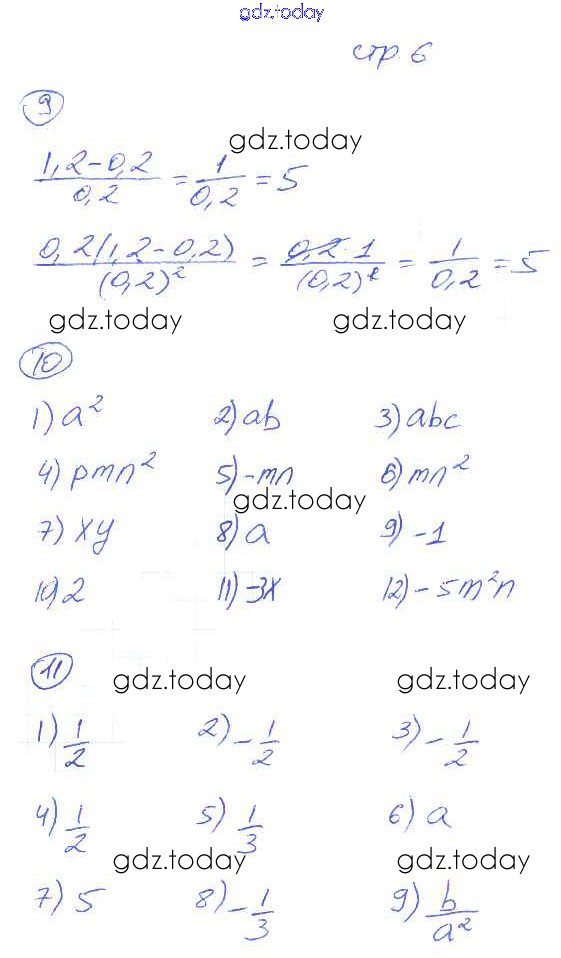 gdz.today
стр. 6
9
gdz.today
(1,2-0,2)/0,2 = 1/0,2 = 5
(0,2(1,2-0,2))/(0,2)² = (0,2·1)/(0,2)² = 1/0,2 = 5
gdz.today gdz.today
10
1) a² 2) ab 3) abc
4) pmn² 5) -mn 6) mn²
gdz.today
7) xy 8) a 9) -1
10) 2 11) -3x 12) -5m²n
11
gdz.today gdz.today
1) 1/2 2) -1/2 3) -1/2
4) 1/2 5) 1/3 6) a
gdz.today gdz.today
7) 5 8) -1/3 9) b/a²